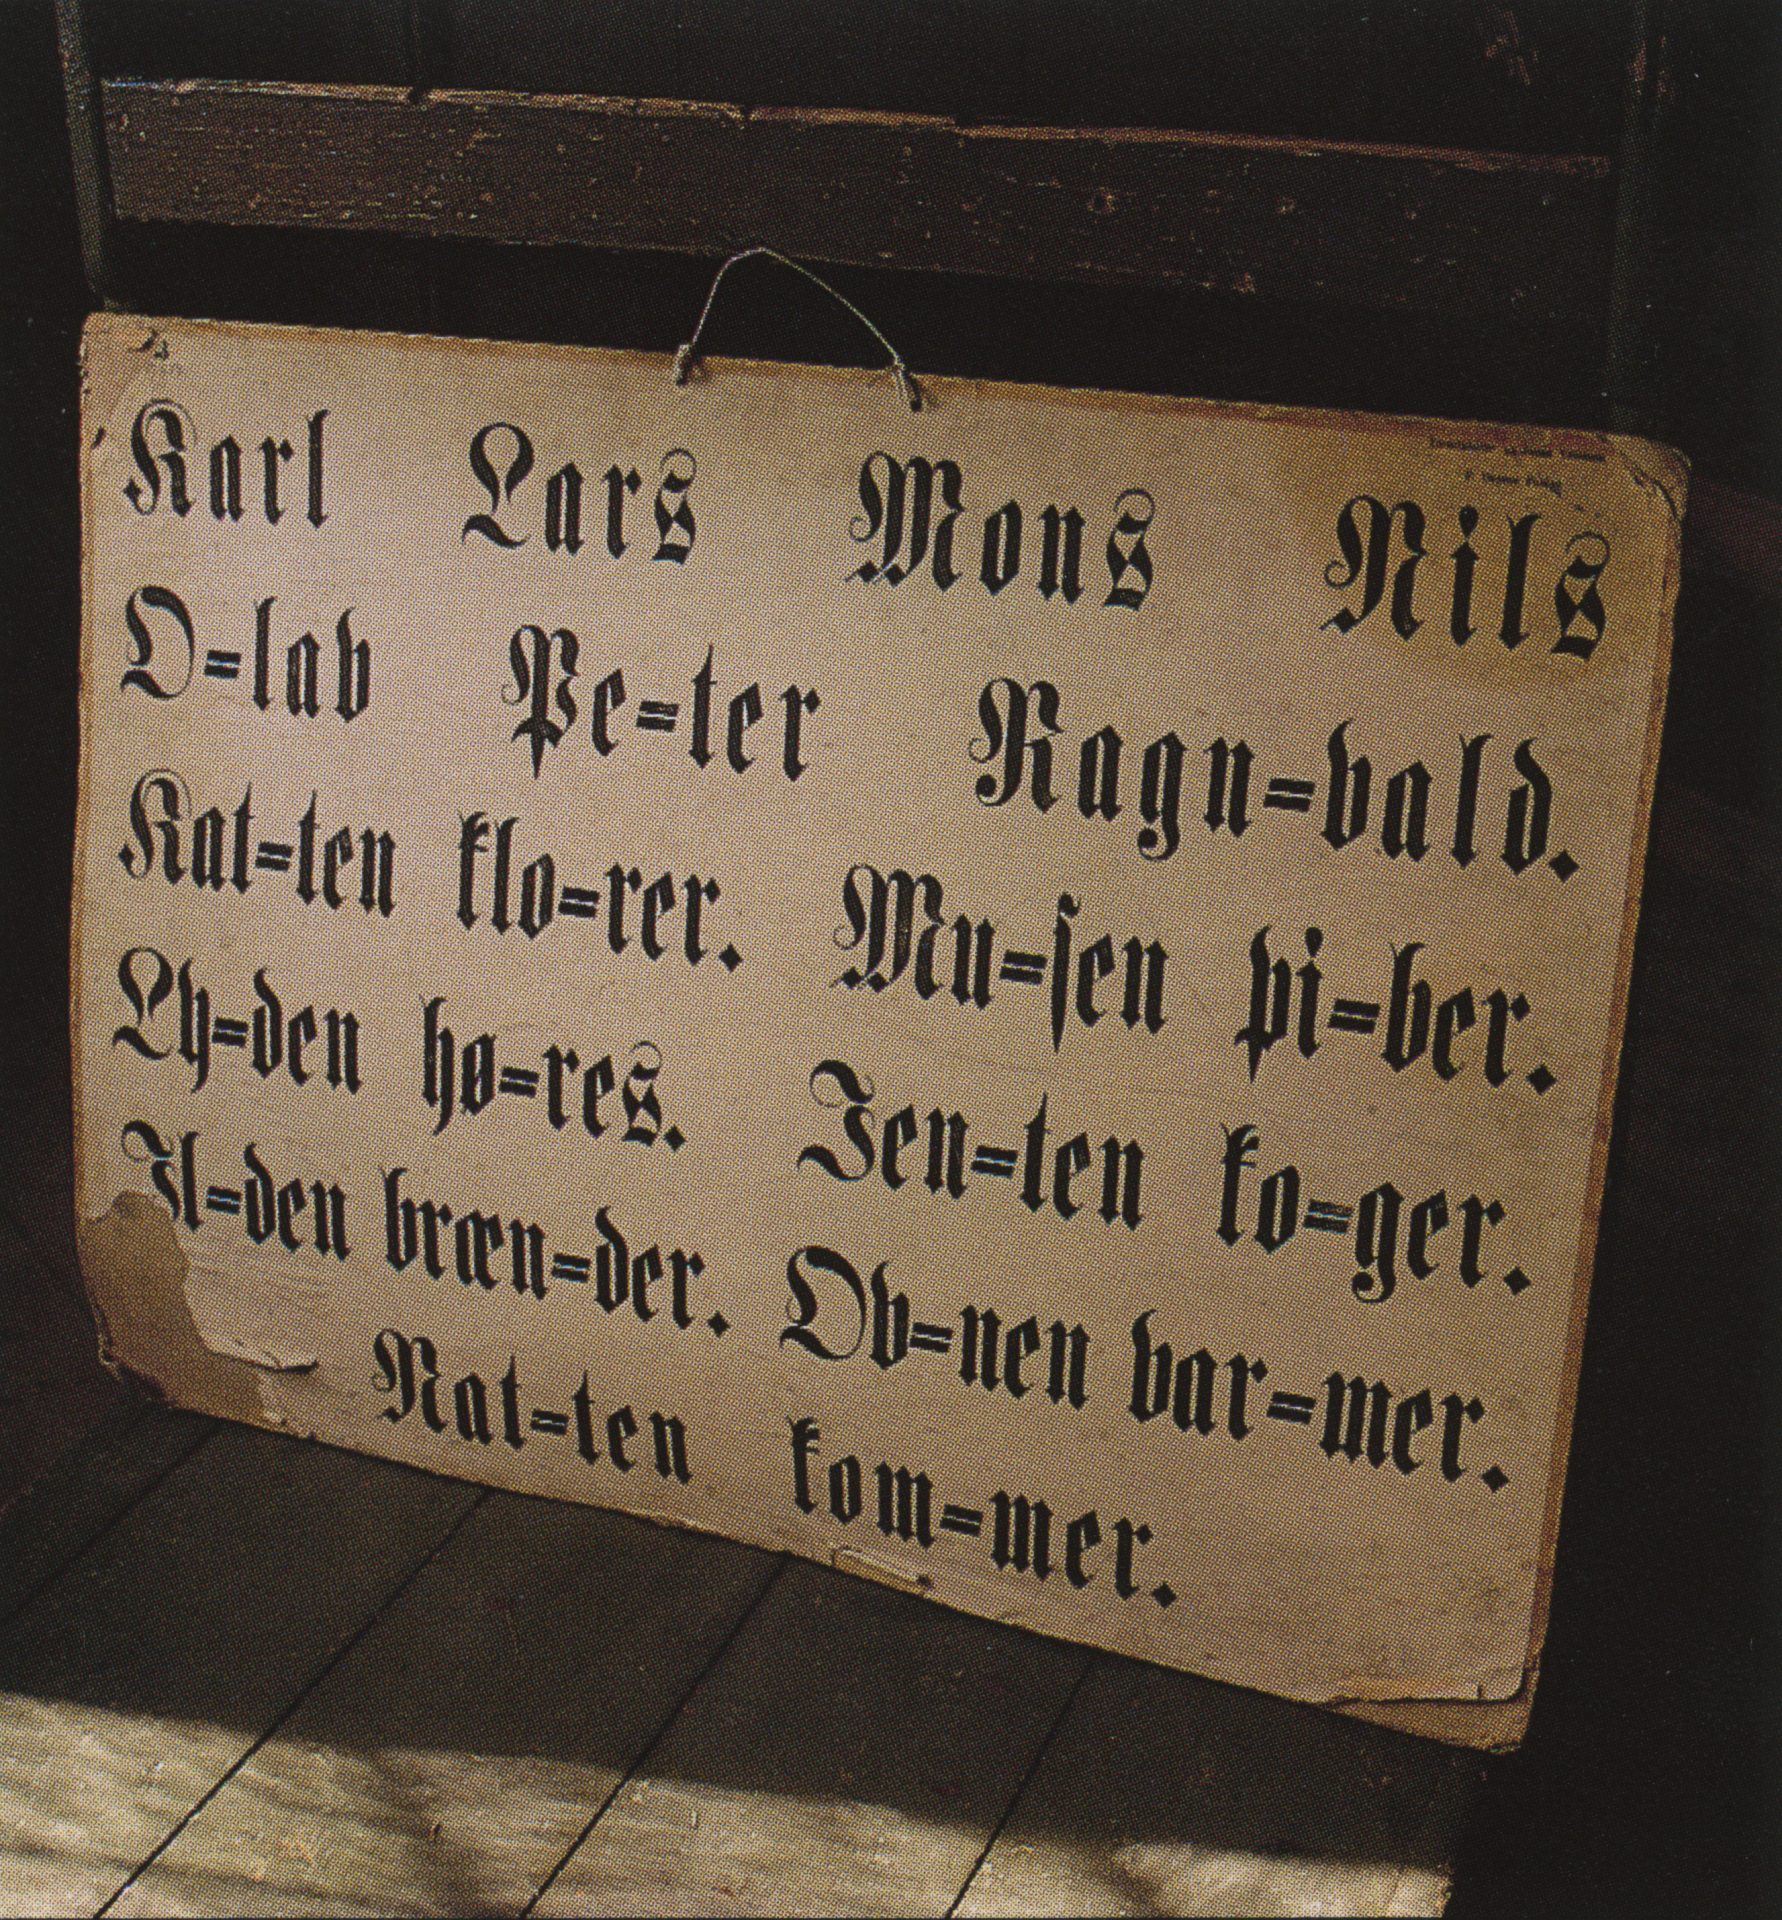 Karl Lars Mons Nils
O=lav Pe=ter Ragn=vald.
Kat=ten klo=rer. Mu=ſen pi=ber.
Ly=den hø=res. Jen=ten ko=ger.
Il=den bræn=der. Ov=nen var=mer.
Nat=ten kom=mer.